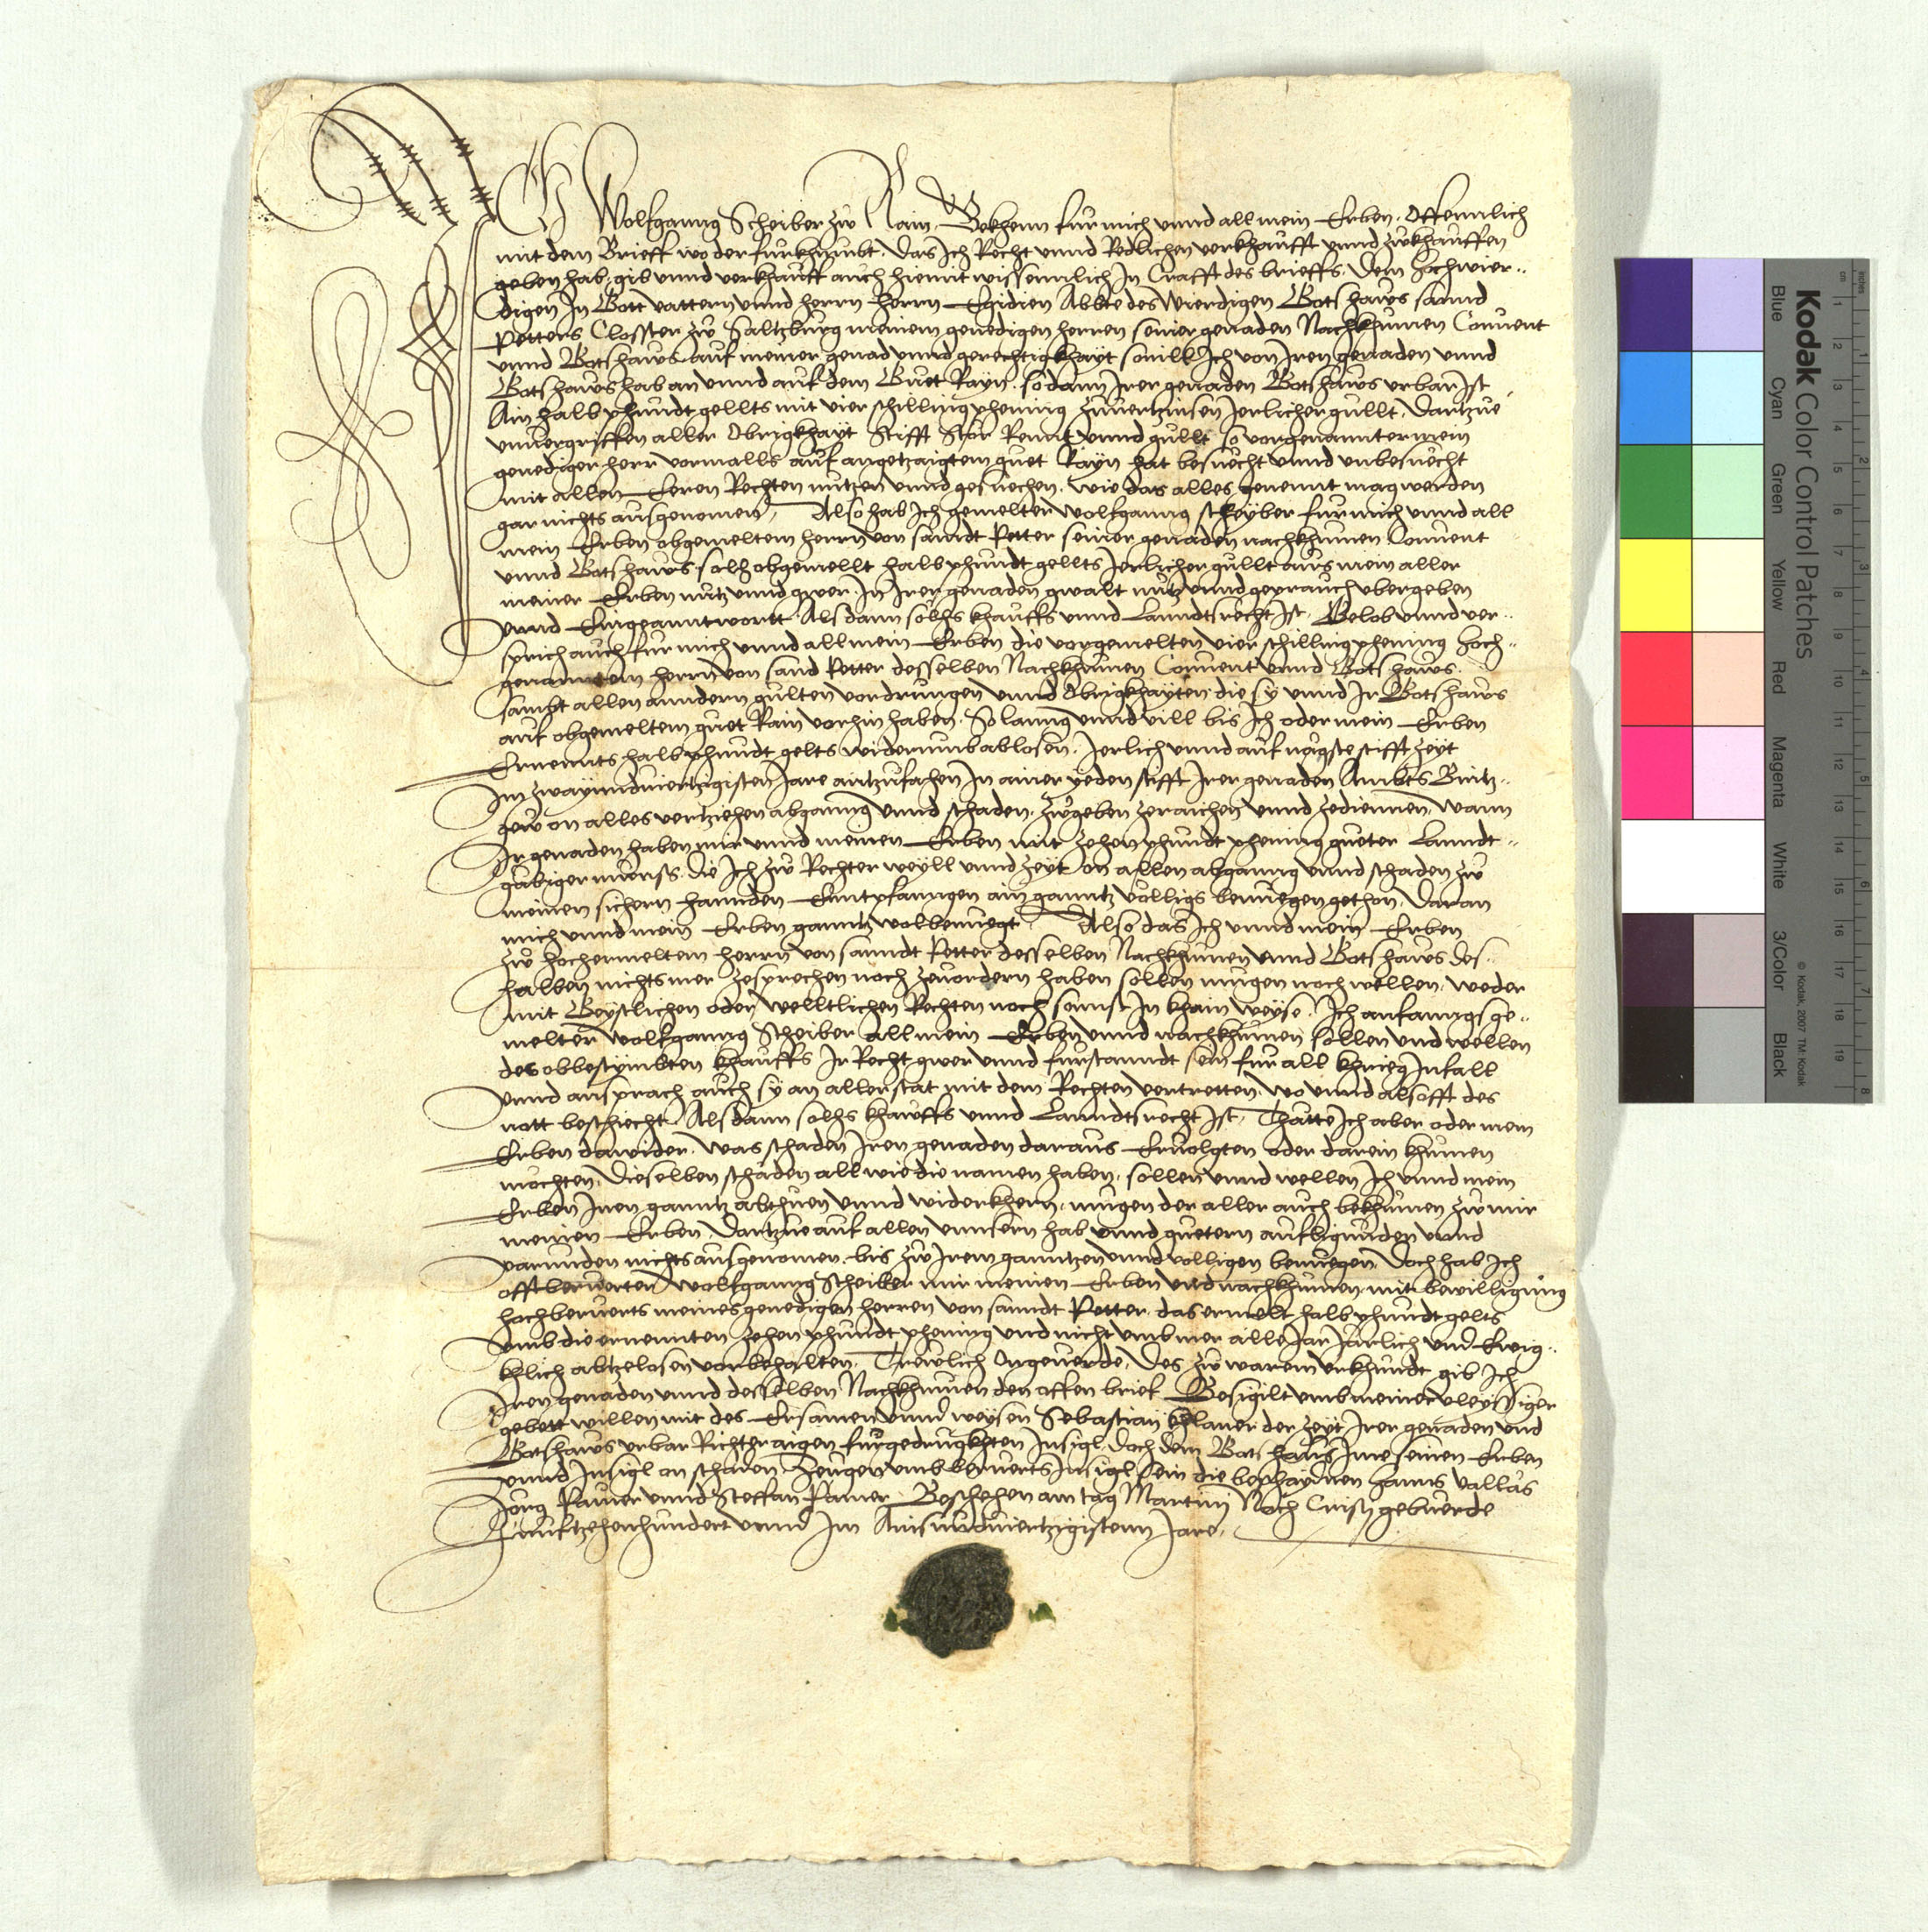 Ich Wolfganng Scheiber zw Rain, Bekhenn fur mich unnd all mein Erben, Offennlich
mit dem Brieff wo der furkhumbt, das Ich Recht unnd Redlichen verkhaufft unnd zw khauffen
geben hab, gib unnd verkhauff auch hiemit wissenntlich In Crafft des brieffs. Dem Hochwier..
digen In Gott vattern unnd herrn herrn Egidien Abbte des wierdigen Gotshaws sannd
Petters Closster zw Saltzburg meinem genedigen herren seiner genaden Nachkhumen Convent
unnd Gotshaws auf meiner genad unnd gerechtigkhayt sovill Ich von Iren genaden unnd
Gotshaws hab an unnd auf dem Guet Rayn. so dann Irer genaden Gotshaws urbar Ist
Ain halb phundt gellts mit vier schilling phening zuvertzinsen Jerlicher gullt, dartzue
unvergriffen aller Obrigkhayt Stifft Stör Rennt unnd gullt so vorgenannter mein
genediger herr vormalls auf angetzaigtem guet Rayn hat besuecht unnd unbesuecht
mit allen Eeren Rechten nutzen unnd gesuechen, wie das alles genennt mag werden
gar nichts ausgenomen, Also hab Ich gemelter Wolfganng scheyber fur mich unnd all
mein Erben obgemeltem herrn von sanndt Petter seiner genaden nachkhumen Convent
unnd Gotshaws solh obgemellt halb phundt gellts Jerlicher gullt aus mein aller
meiner Erben nutz unnd gwer, In Irer genaden gwalt nutz unnd geprauch ubergeben
unnd Eingeanntwortt. Als dann solhs khauffs unnd Lanndtsrecht Ist, Gelob unnd ver..
sprich auch fur mich unnd all mein Erben die vorgemelten vier schilling phening Hoch..
genanntem herrn von sand Petter desselben Nachkhumen Convent unnd Gotshaws
sambt allen anndern gulten vordrungen unnd Obrigkhayten die sy unnd Ir Gotshaws
auf obgemeltem guet Rain vorhin haben. So lanng unnd vill bis Ich oder mein Erben
Ernennts halb phundt gelts widerumb ablosen, Jerlich unnd auf negste stifft zeyt
Im zwayundviertzigisten Jare antzufahen In ainer yeden stifft Irer genaden Ambts Pintz..
gew on alles vertziehen abganng unnd schaden, zw geben zeraichen unnd zediennen, wann
Ir genaden haben mir unnd meinen Erben mit zehen phundt phening gueter Lanndt..
gabiger munss, die Ich zw Rechter weyll unnd zeyt on allen abganng unnd schaden zw
meinen sichern hannden Emntpfanngen ain ganntz völligs benuegen gethon, daran
mich unnd mein Erben ganntz wolbenuegt Also das Ich unnd mein Erben
zw hochermeltem herrn von sanndt Petter desselben Nachkhumen unnd Gotshaws des..
halben nichts mer zesprechen noch zevordern haben sollen mugen noch wellen, weder
mit Geystlichen oder welltlichen Rechten noch sonnst In khain weyse. Ich anfanngs ge..
melter Wolfganng Scheiber all mein Erben unnd nachkhumen sollen und wellen
des obbestymbten khauffs Ir Recht gwer unnd furstanndt sein fur all khrieg Infall
unnd ansprach auch sy an aller stat mit dem Rechten vertretten, wo unnd als offt des
nott beschiecht, Als dann solhs khauffs unnd Lanndtsrecht Ist, Thatte Ich aber oder mein
Erben dawider, was schaden Iren genaden daraus Ervolgten oder darein khumen
mochten, Dieselben schäden all wie die namen haben, sollen unnd wellen Ich unnd mein
Erben Inen ganntz abthuen unnd widerkhern, mugen der aller auch bekhumen zw mir
meinen Erben, dartzue auf allen unnsern hab unnd guetern aufligunden unnd
varunden nichts ausgenomen, bis zw Irem ganntzen unnd völligen benuegen, Doch hab Ich
offt beruerter Wolfganng Scheiber mir meinen Erben und nachkhumen mit bewilligung
hochberuerts meines genedigen herren von sanndt Petter, das ermelt halb phundt gelts
umb die ernennten zehen phundt phening und nicht umb mer alle Jar Järlich und Ewig..
khlich abtzelosen vorbehalten, Trewlich Ongeverde, Des zw warem urkhundt gib Ich
Iren genaden unnd desselben Nachkhumen den offen brief Besigilt umb meiner vleyssiger
gebett willen mit des Ersamen unnd weysen Sebastian der zeyt Irer genaden und
Gotshaws urbar Richter aigen furgedrugkhten Insigl, doch dem Gotshaws Ime seinen Erben
unnd Insigl on schaden, Zeugen umb beruerts Insigl sein die beschaydnen Hanns Vallas
Jorg Paurr unnd Steffan Beschehen am tag Martini Nach Cristi gebuerde
Funftzehenhundert unnd Im Ainsundviertzigistenn Jare,
Kodak Color Control Patches
Blue
Cyan
Green
Yellow
Red
Magenta
White
3/Color
Black
© Kodak, 2007 TM: Kodak
cm 1 2 3 4 5 6 7 8 9 10 11 12 13 14 15 16 17 18 19
inches 1 2 3 4 5 6 7 8